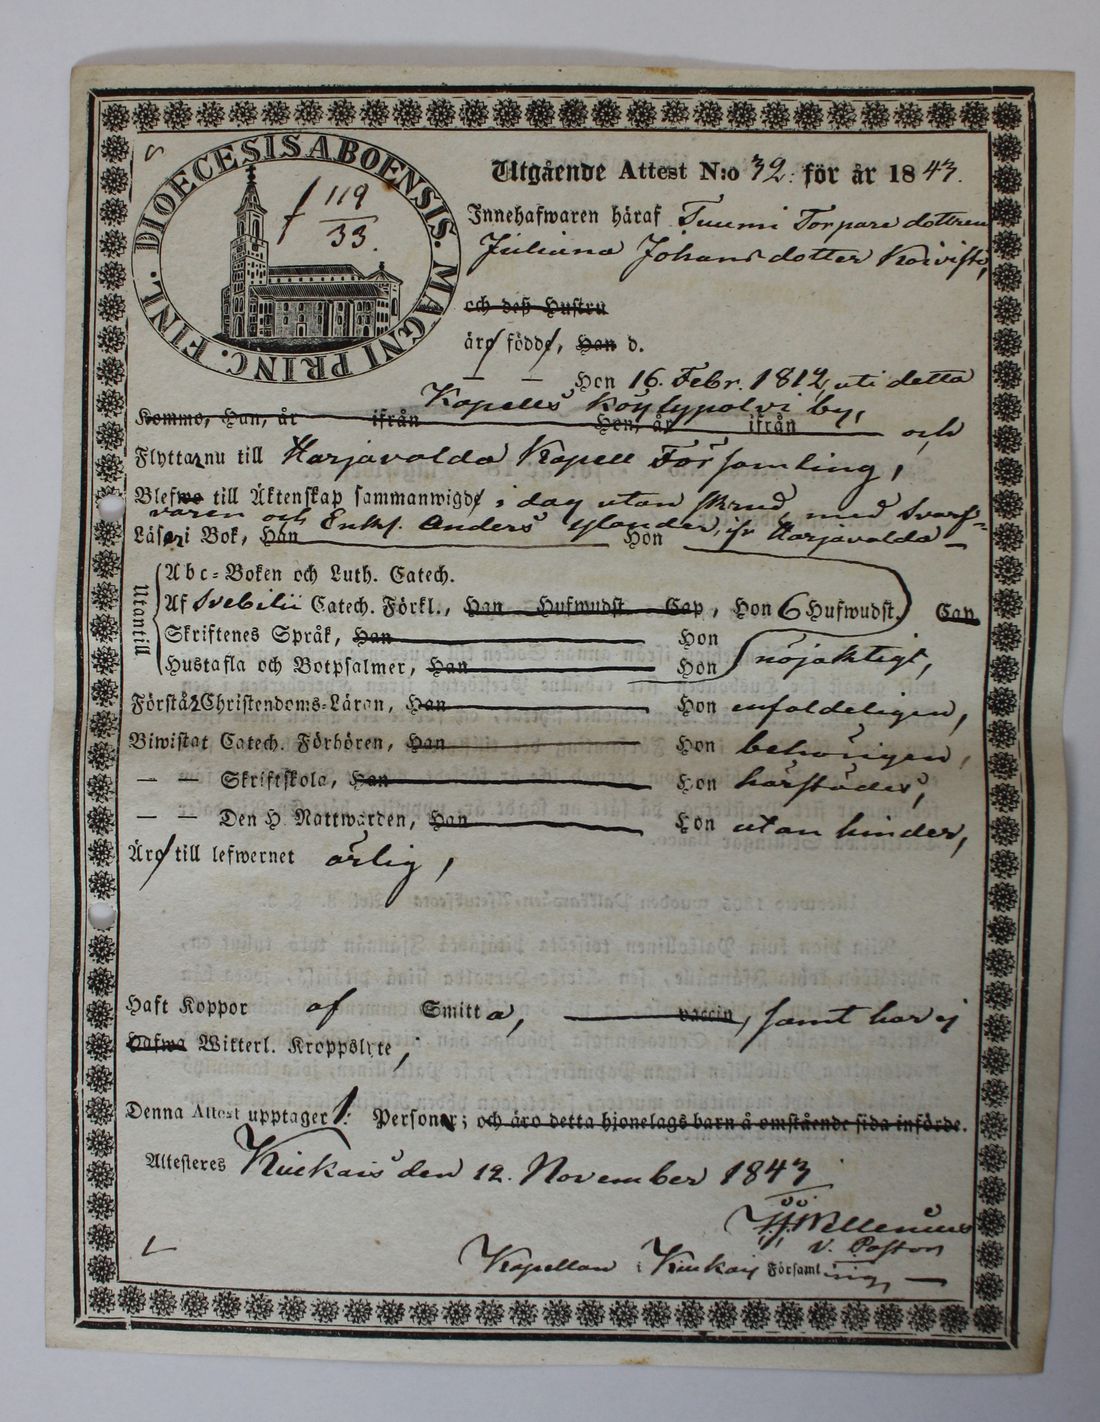 DIOECESIS ABOENSIS. MAGNI PRINC. FINL.
f 119
33.
Utgående Attest N:o 32. för år 1843.
Innehafwaren häraf Tuumi Torpare dottren
Juliana Johans dotter Koivisto,
och deß Hustru
äro födde, Han d.
— — Hon 16. Febr. 1812, uti detta
Kapells Köylypolvi by,
Kommo, Han, år ifrån Hon, år ifrån och
Flytta nu till Harjavalda Kapell Församling,
Blefwo till Äktenskap sammanwigde i dag utan skrud, med Svarf-
varen och Enkl. Anders Ylander, ifr Harjavalda —
Läsa i Bok, Han Hon
Utantill
Abc-Boken och Luth. Catech.
Af Svebilii Catech. Förkl., Han Hufwudst. Cap, Hon 6 Hufwudst. Cap.
Skriftenes Språk, Han Hon
Hustafla och Botpsalmer, Han Hon nöjaktigt,
Förstå Christendoms-Läran, Han Hon enfaldeligen,
Biwistat Catech. Förhören, Han Hon behörigen,
— — Skriftskola, Han Hon härstädes,
— — Den H. Nattwarden, Han Hon utan hinder,
Äro till lefwernet ärlig,
Haft Koppor af Smitta, vaccin, samt har ej
Hafwa Witterl. Kroppslyte,
Denna Attest upptager 1. Personer; och äro detta hjonelags barn å omstående sida införde.
Attesteres Kiukais den 12. November 1843
Wellenius
v. Pastor
Kapellan i Kiukais Församling —